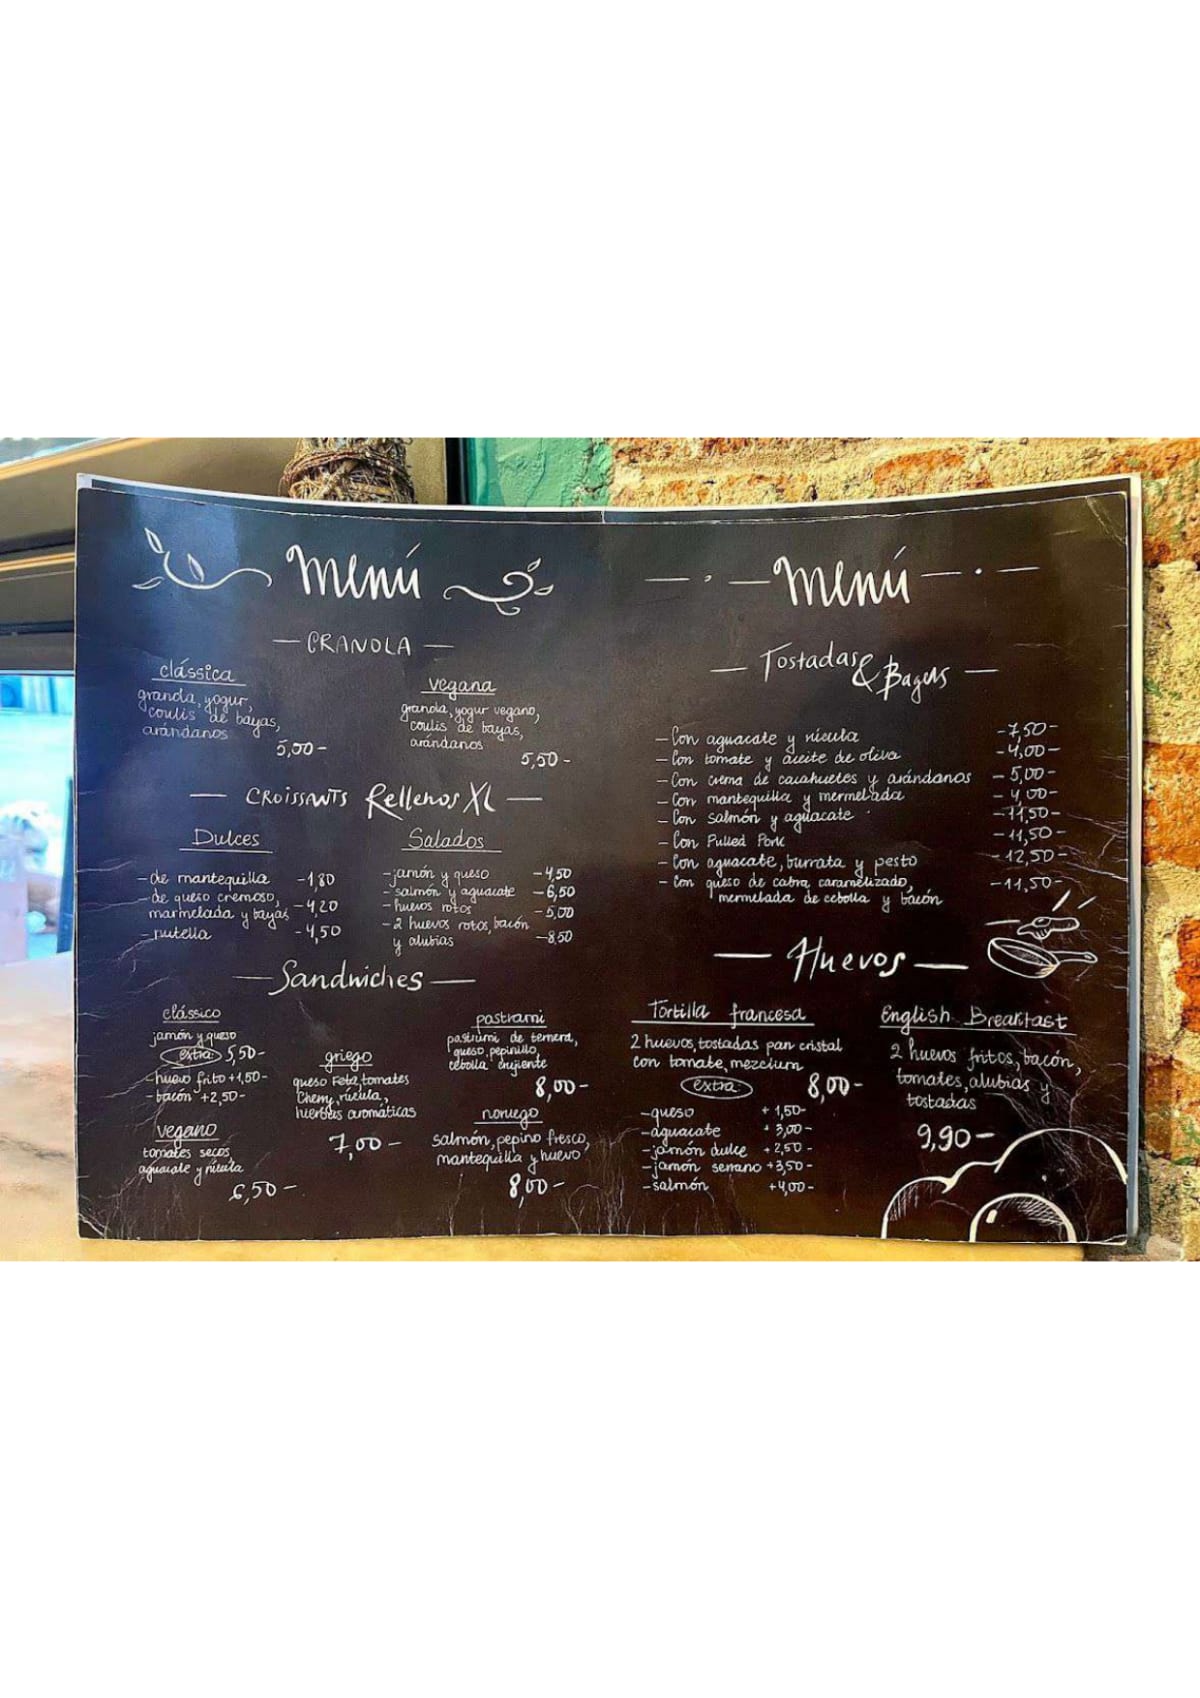 Menú
— GRANOLA —
clássica
granola, yogur,
coulis de bayas,
arándanos
5,00-
vegana
granola, yogur vegano,
coulis de bayas,
arándanos
5,50-
— CROISSANTS Rellenos XL —
Dulces
-de mantequilla -1,80
-de queso cremoso,
marmelada y bayas -4,20
-nutella -4,50
Salados
-jamón y queso -4,50
-salmón y aguacate -6,50
-huevos rotos -5,00
-2 huevos rotos, bacón
y alubias -8,50
— Sandwiches —
clássico
jamón y queso
extra 5,50-
-huevo frito +1,50-
-bacón +2,50-
vegano
tomates secos,
aguacate y rúcula
6,50-
griego
queso Feta, tomates
Cherry, rúcula,
hierbas aromáticas
7,00-
pastrami
pastrami de ternera,
queso, pepinillo,
cebolla crujiente
8,00-
noruego
salmón, pepino fresco,
mantequilla y huevo
8,00-
— · — Menú — · —
— Tostadas & Bagels —
-Con aguacate y rúcula -7,50-
-Con tomate y aceite de oliva -4,00-
-Con crema de cacahuetes y arándanos -5,00-
-Con mantequilla y mermelada -4,00-
-Con salmón y aguacate -11,50-
-Con Pulled Pork -11,50-
-Con aguacate, burrata y pesto -12,50-
-Con queso de cabra caramelizado,
mermelada de cebolla y bacón -11,50-
— Huevos —
Tortilla francesa
2 huevos, tostadas pan cristal
con tomate, mezclum
extra 8,00-
-queso +1,50-
-aguacate +3,00-
-jamón dulce +2,50-
-jamón serrano +3,50-
-salmón +4,00-
English Breakfast
2 huevos fritos, bacón,
tomates, alubias y
tostadas
9,90-